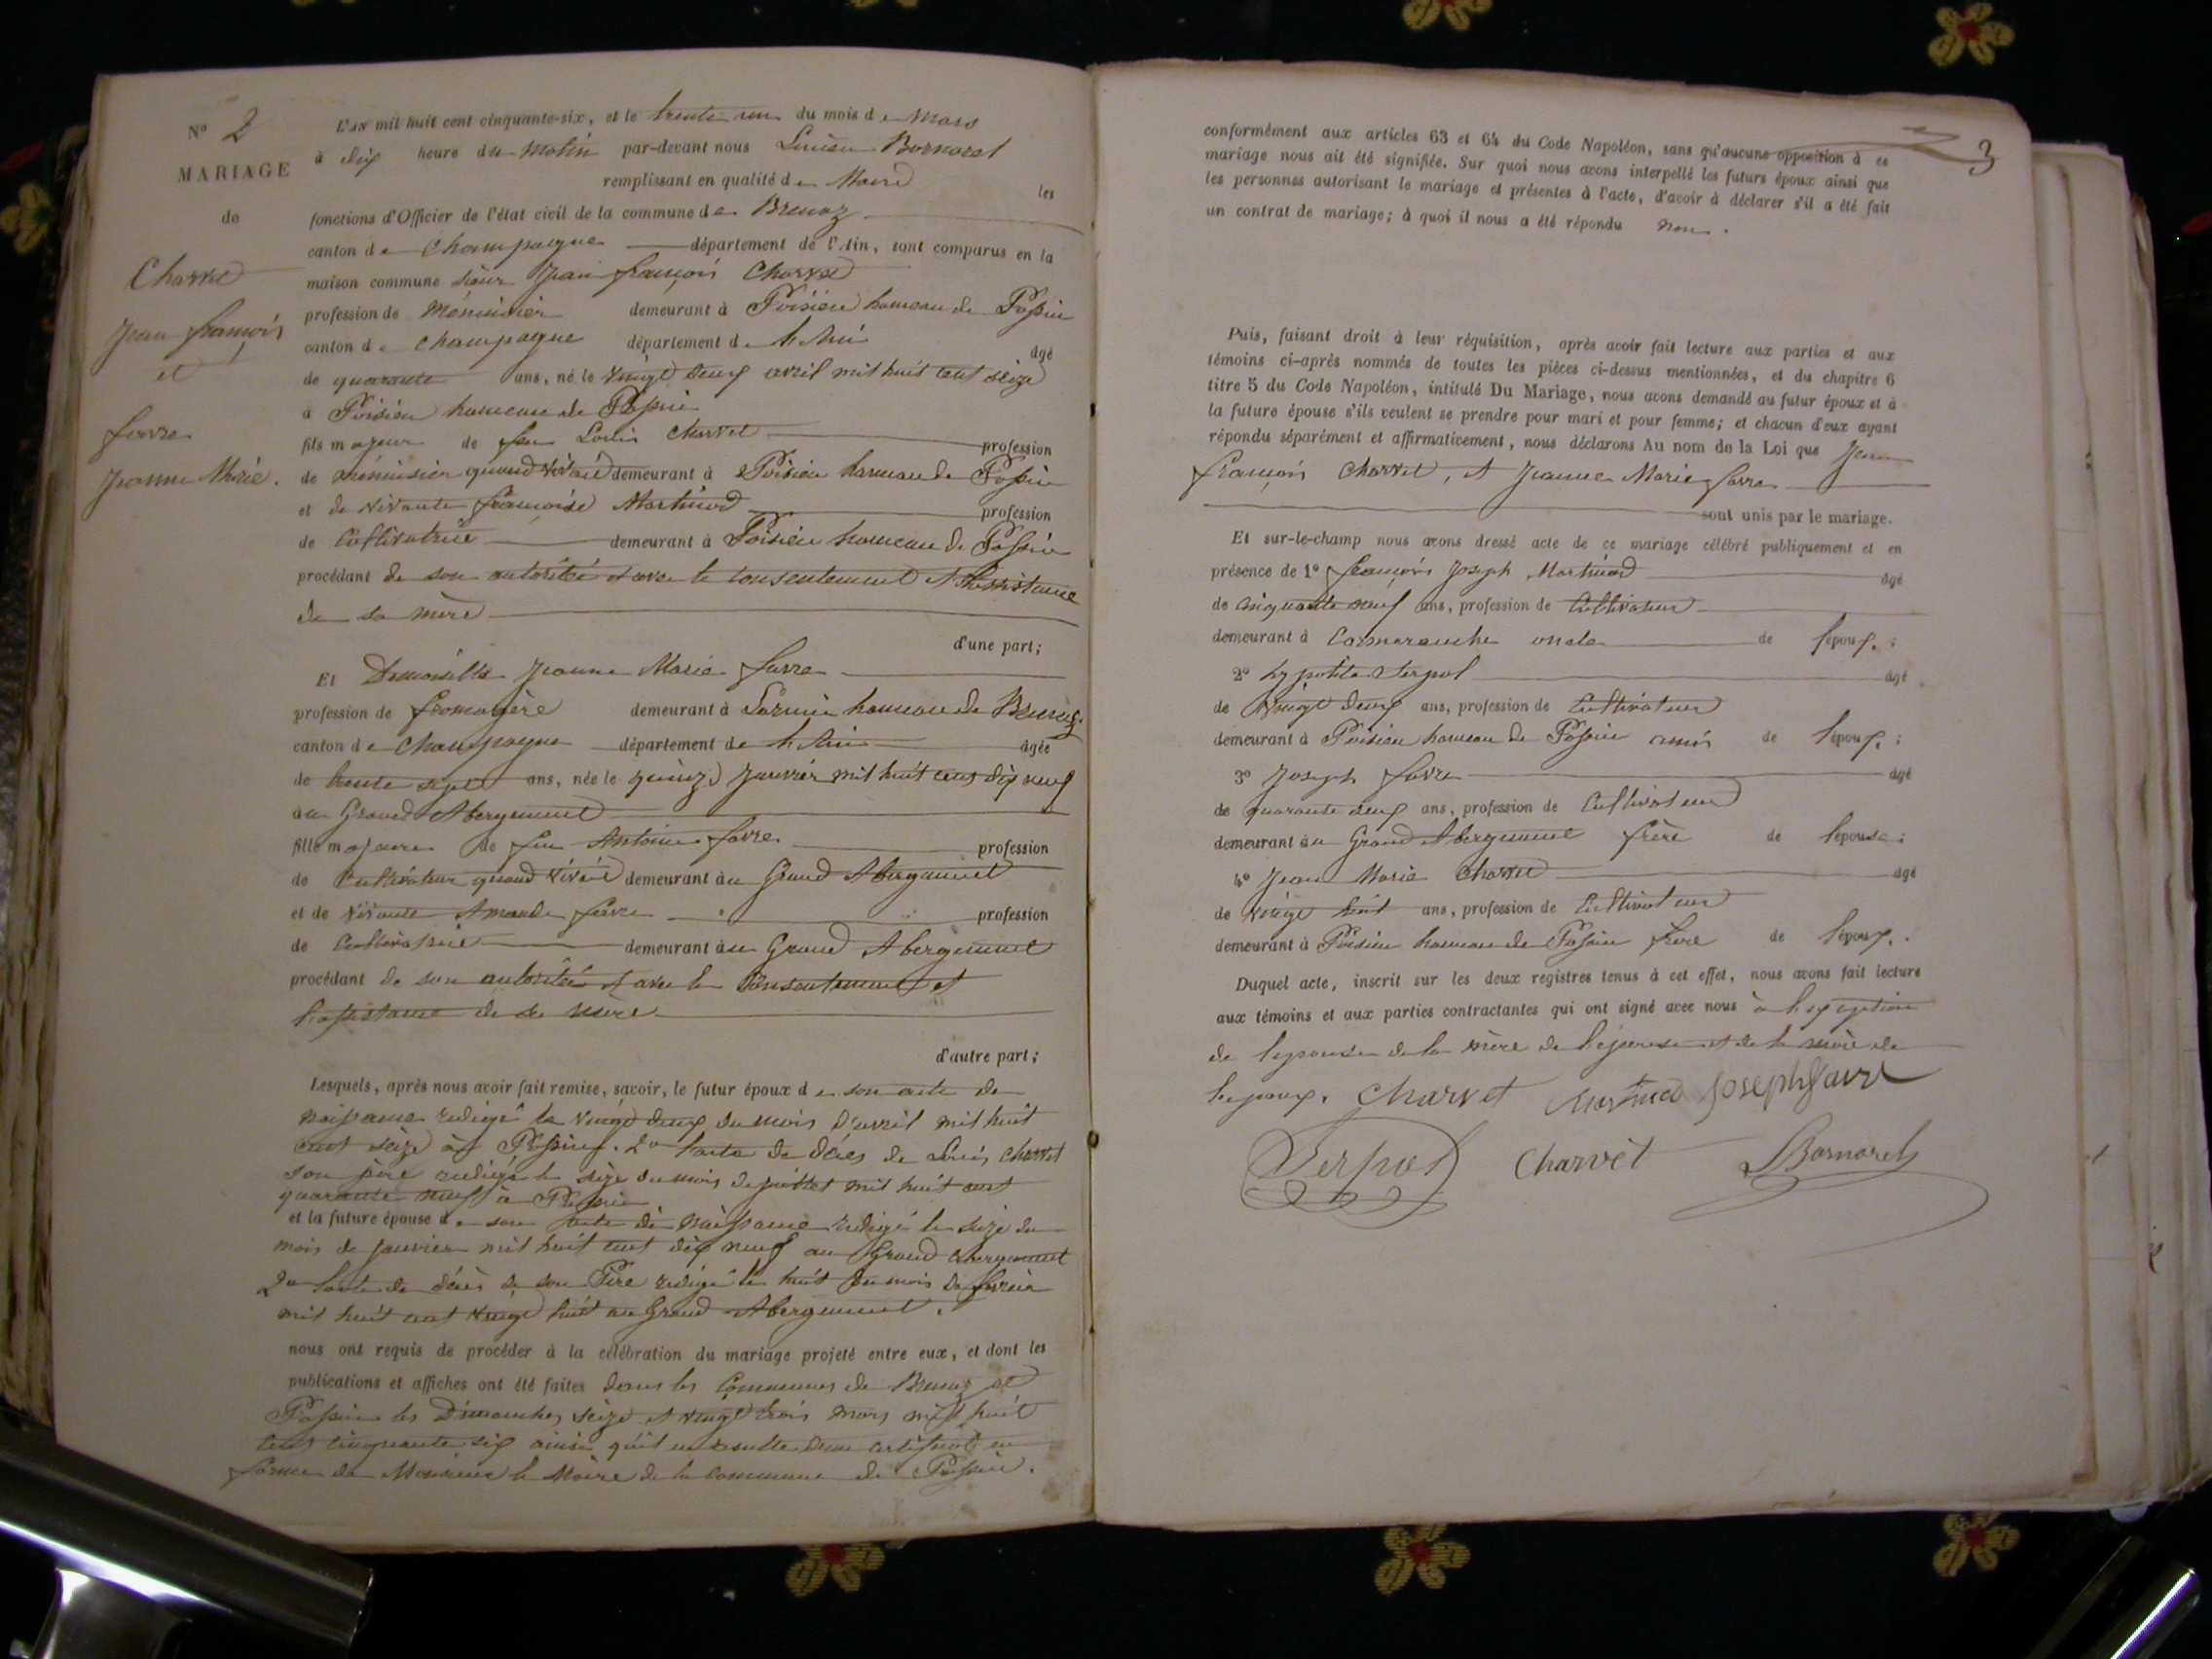 N° 2
MARIAGE
de
Charvet
Jean françois
et
favre
Jeanne Marie.
L'an mil huit cent cinquante-six, et le trente un du mois de Mars
à dix heure du Matin par-devant nous Lucien Bornarel
remplissant en qualité de Maire les
fonctions d'Officier de l'état civil de la commune de Brenaz
canton de Champagne département de l'Ain, sont comparus en la
maison commune sieur Jean françois Charvet
profession de Ménuisier demeurant à Poisieu hameau de Passin
canton de Champagne département de l'Ain âgé
de quarante ans, né le vingt deux avril mil huit cent seize
à Poisieu hameau de Passin
fils majeur de feu Louis Charvet profession
de ménuisier quand vivait demeurant à Poisieu hameau de Passin
et de vivante françoise Martinod profession
de Cultivatrice demeurant à Poisieu hameau de Passin
procédant de son autoritée et avec le consentement et l'assistance
de sa mère
d'une part;
Et Demoiselle Jeanne Marie favre
profession de fromagère demeurant à hameau de Brenaz
canton de Champagne département de l'Ain âgée
de trente sept ans, née le quinze Janvier mil huit cent dix neuf
au Grand Abergement
fille majeure de feu Antoine favre profession
de Cultivateur quand vivait demeurant au Grand Abergement
et de vivante favre profession
de Cultivatrice demeurant au Grand Abergement
procédant de son autoritée et avec le Consentement et
l'assistance de sa mère
d'autre part;
Lesquels, après nous avoir fait remise, savoir, le futur époux de son acte de
naissance redigé le vingt deux du mois d'avril mil huit
cent seize à Passin. 2° l'acte de décès de Louis Charvet
son père redigé le seize du mois de juillet mil huit cent
quarante neuf à Passin
et la future épouse de son acte de naissance redigé le seize du
mois de janvier mil huit cent dix neuf au Grand abergement
2° l'acte de décès de son Père redigé le huit du mois de fevrier
mil huit cent vingt huit au Grand Abergement.
nous ont requis de procéder à la célébration du mariage projeté entre eux, et dont les
publications et affiches ont été faites dans les Communes de Brenaz et
Passin les Dimanches seize et vingt trois mars mil huit
cent cinquante six ainsi qu'il en resulte d'un certificat en
forme de Monsieur le Maire de la commune de Passin.
3
conformément aux articles 63 et 64 du Code Napoléon, sans qu'aucune opposition à ce
mariage nous ait été signifiée. Sur quoi nous avons interpellé les futurs époux ainsi que
les personnes autorisant le mariage et présentes à l'acte, d'avoir à déclarer s'il a été fait
un contrat de mariage; à quoi il nous a été répondu non.
Puis, faisant droit à leur réquisition, après avoir fait lecture aux parties et aux
témoins ci-après nommés de toutes les pièces ci-dessus mentionnées, et du chapitre 6
titre 5 du Code Napoléon, intitulé Du Mariage, nous avons demandé au futur époux et à
la future épouse s'ils veulent se prendre pour mari et pour femme; et chacun d'eux ayant
répondu séparément et affirmativement, nous déclarons Au nom de la Loi que Jean
françois Charvet, et Jeanne Marie favre
sont unis par le mariage.
Et sur-le-champ nous avons dressé acte de ce mariage célébré publiquement et en
présence de 1° françois Joseph Martinod âgé
de cinquante neuf ans, profession de Cultivateur
demeurant à Cormaranche oncle de l'époux.;
2° hypolite Serpol âgé
de vingt deux ans, profession de Cultivateur
demeurant à Poisieu hameau de Passin amis de l'époux.;
3° Joseph favre âgé
de quarante deux ans, profession de Cultivateur
demeurant au Grand Abergement frère de l'épouse;
4° Jean Marie Charvet âgé
de vingt huit ans, profession de Cultivateur
demeurant à Poisieu hameau de Passin frere de l'époux.
Duquel acte, inscrit sur les deux registres tenus à cet effet, nous avons fait lecture
aux témoins et aux parties contractantes qui ont signé avec nous à l'exception
de l'epouse de la mère de l'épouse et de la mère de
l'epoux. Charvet Martinod Joseph favre
Serpol Charvet Bornarel